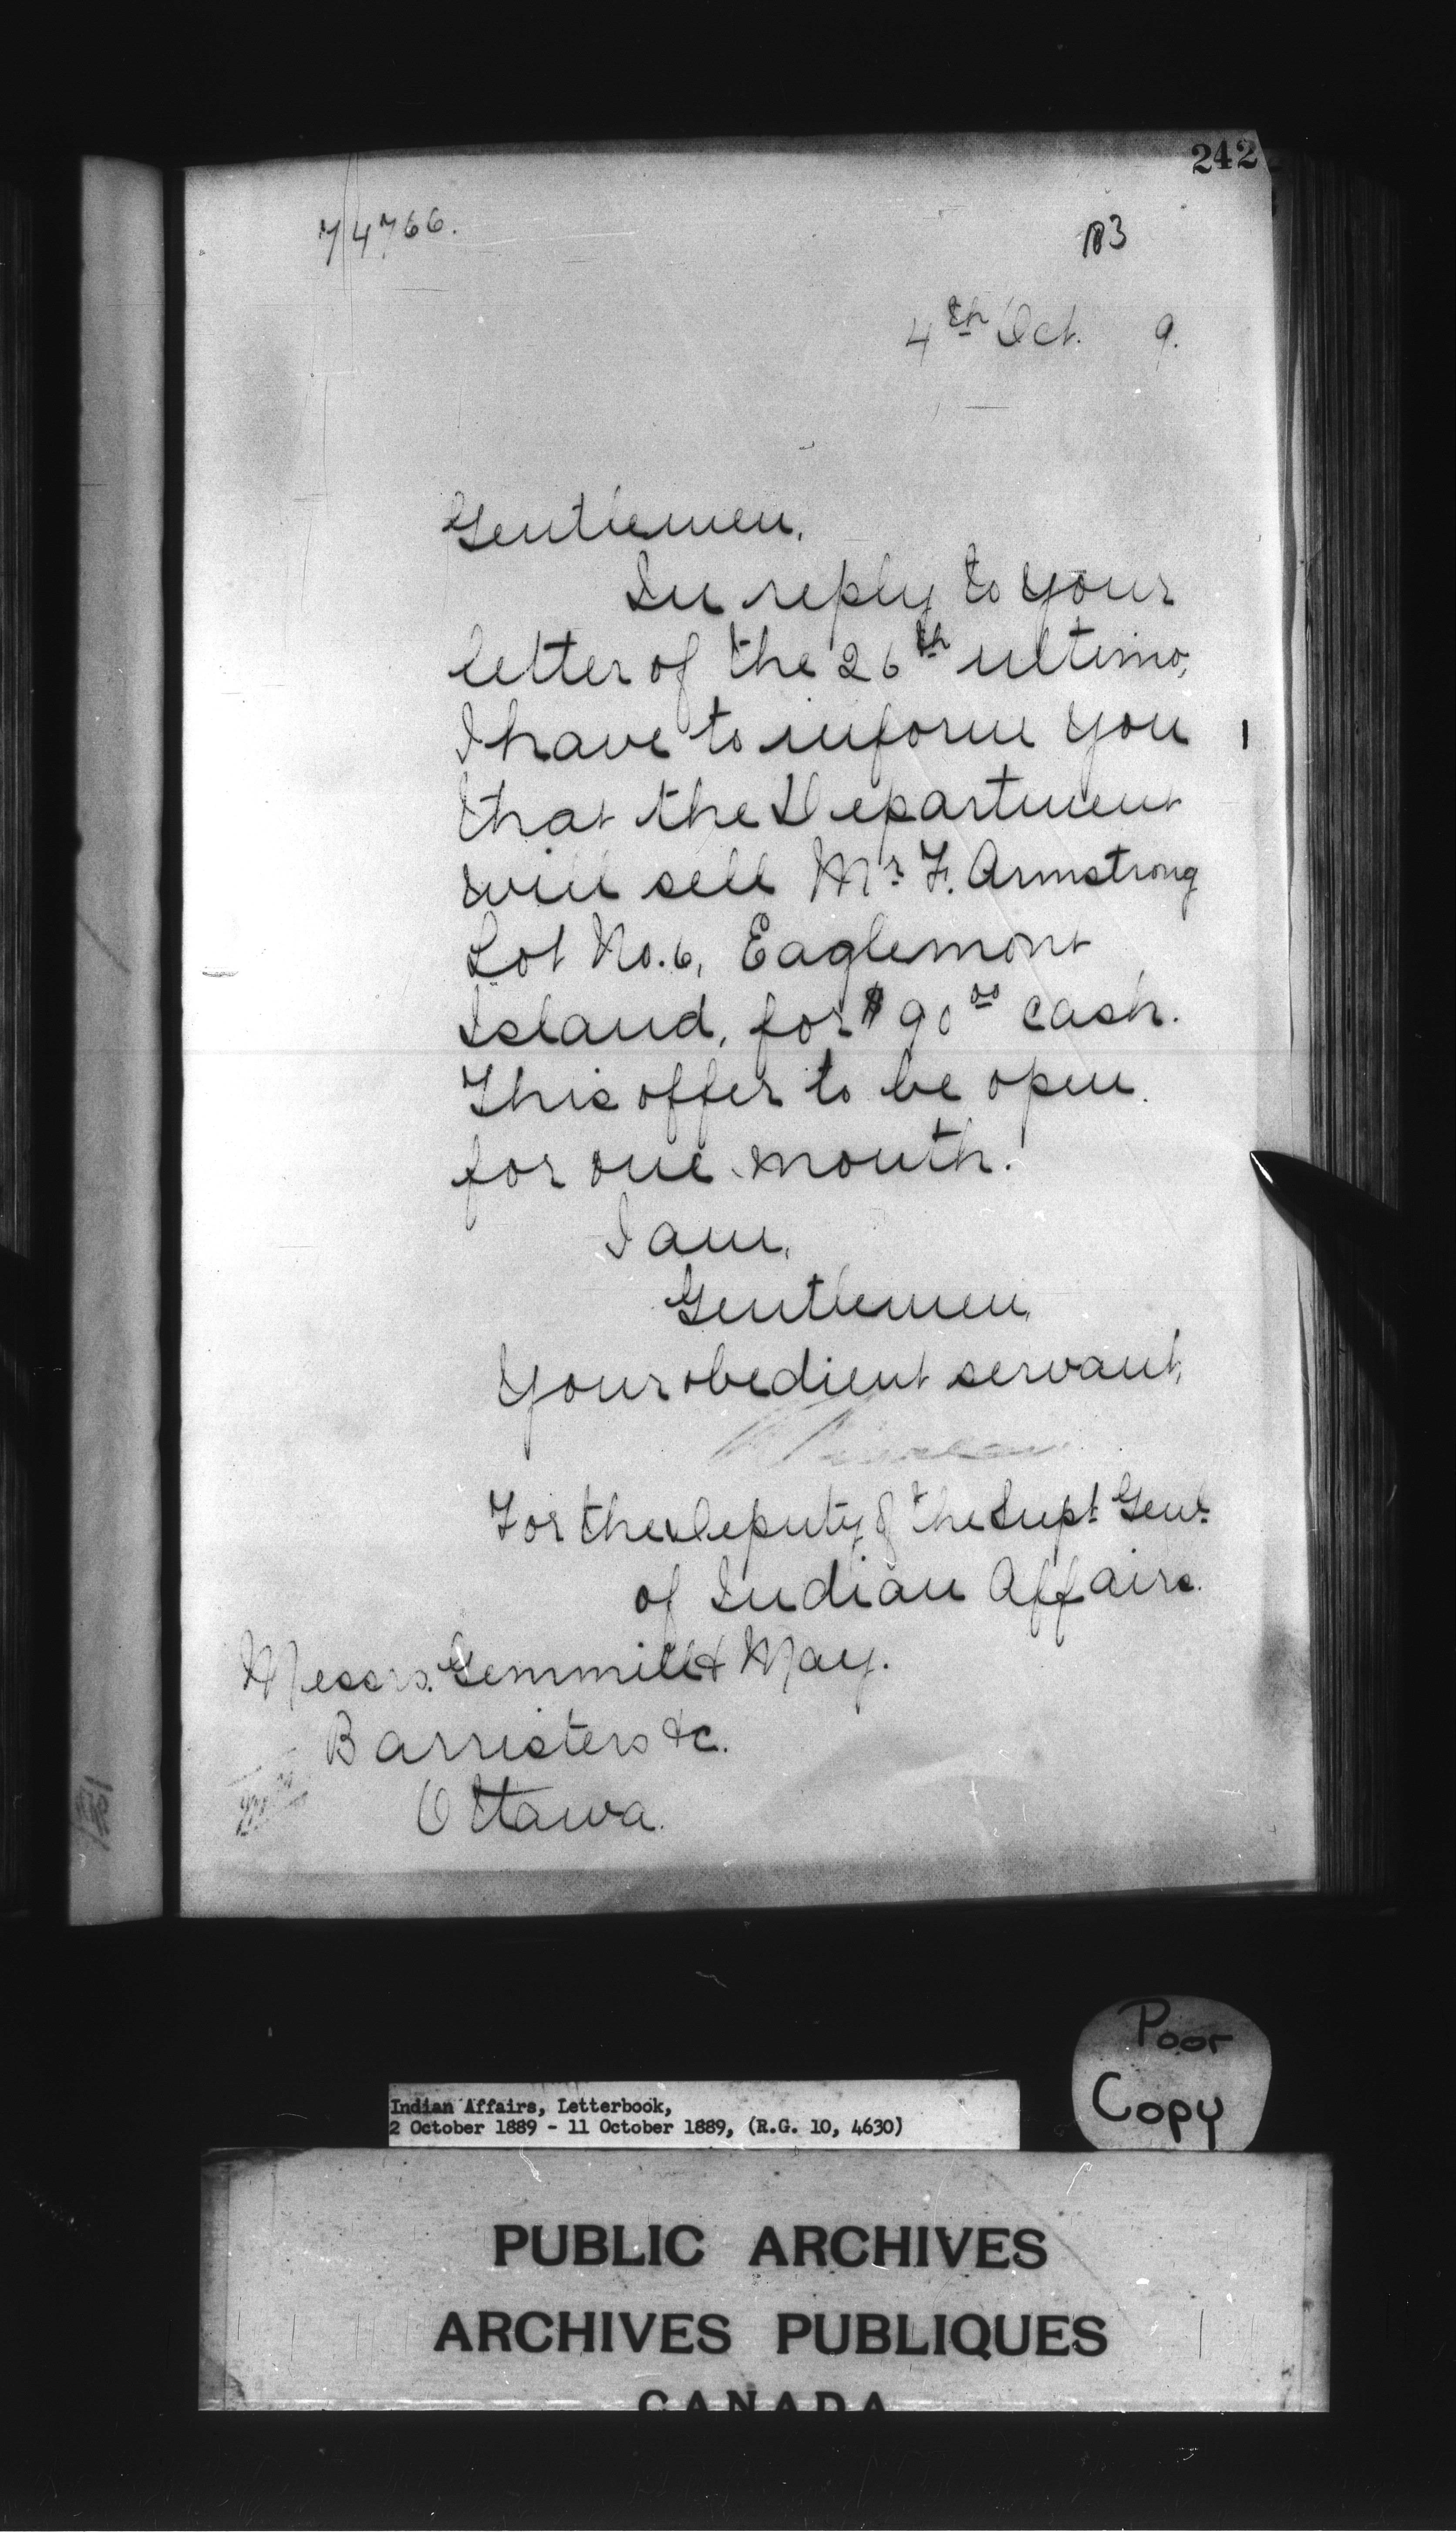 242
74766.
4th Oct. 9.
Gentlemen,
In reply to your
letter of the 26th ultimo,
I have to inform you
that the Department
will sell Mr F. Armstrong
Lot No. 6, Eaglemont
Island, for $90 00 cash.
This offer to be open
for one month.
I am,
Gentlemen,
Your obedient servant,
For the Deputy of the Supt Genl
of Indian Affairs.
Messrs. Gemmill & May.
Barristers &c.
Ottawa.
Poor
Copy
Indian Affairs, Letterbook,
2 October 1889 - 11 October 1889, (R.G. 10, 4630)
PUBLIC ARCHIVES
ARCHIVES PUBLIQUES
CANADA